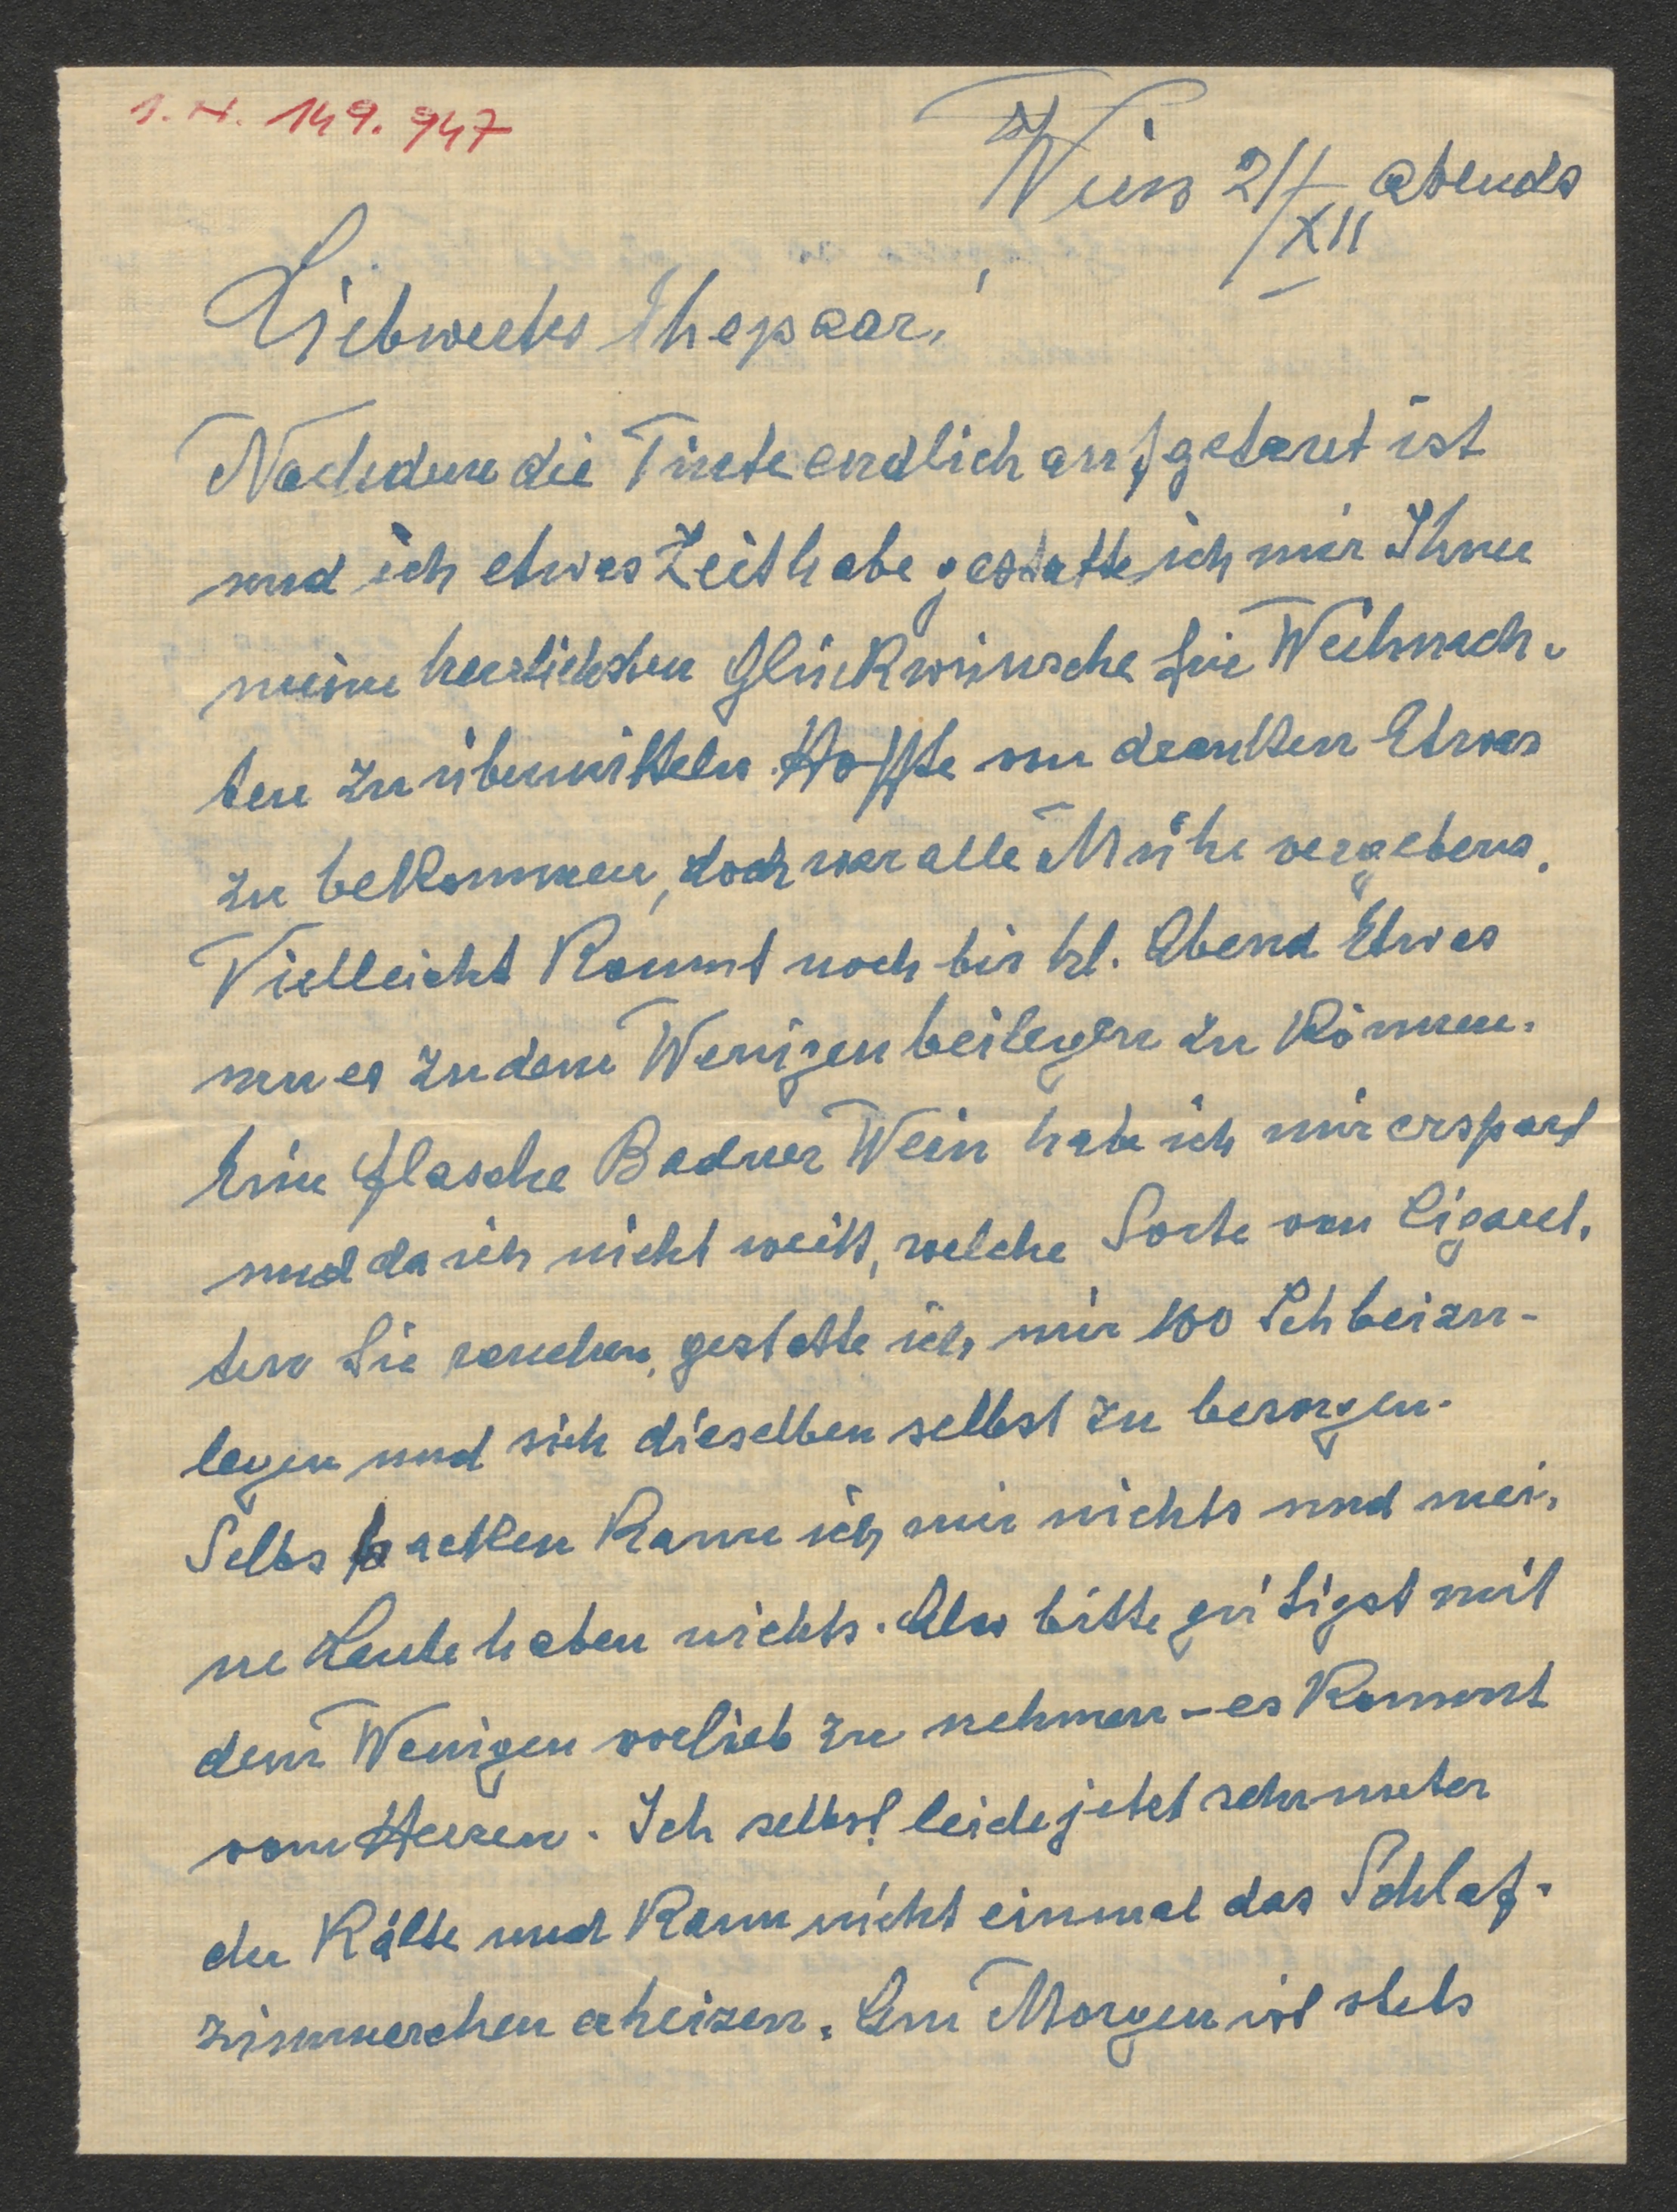 I. N. 149.947
Wien 21/XII abends
Liebwertes Ehepaar!
Nachdem die Tinte endlich aufgetaut ist
und ich etwas Zeit habe gestatte ich mir Ihnen
meine herzlichsten Glückwünsche für Weihnach-
ten zu übermitteln. Hoffte von draußen Etwas
zu bekommen, doch war alle Mühe vergebens.
Vielleicht kommt noch bis hl. Abend Etwas
um es zu dem Wenigen beilegen zu können.
Eine Flasche Badner Wein habe ich mir erspart
und da ich nicht weiß, welche Sorte von Cigaret-
ten Sie rauchen, gestatte ich mir 100 Sch beizu-
legen und sich dieselben selbst zu besorgen.
Selbs backen kann ich mir nichts und mei-
ne Leute haben nichts. Also bitte gütigst mit
dem Wenigen vorlieb zu nehmen – es kommt
vom Herzen. Ich selbst leide jetzt sehr unter
der Kälte und kann nicht einmal das Schlaf-
zimmerchen erheizen. Am Morgen ist stets